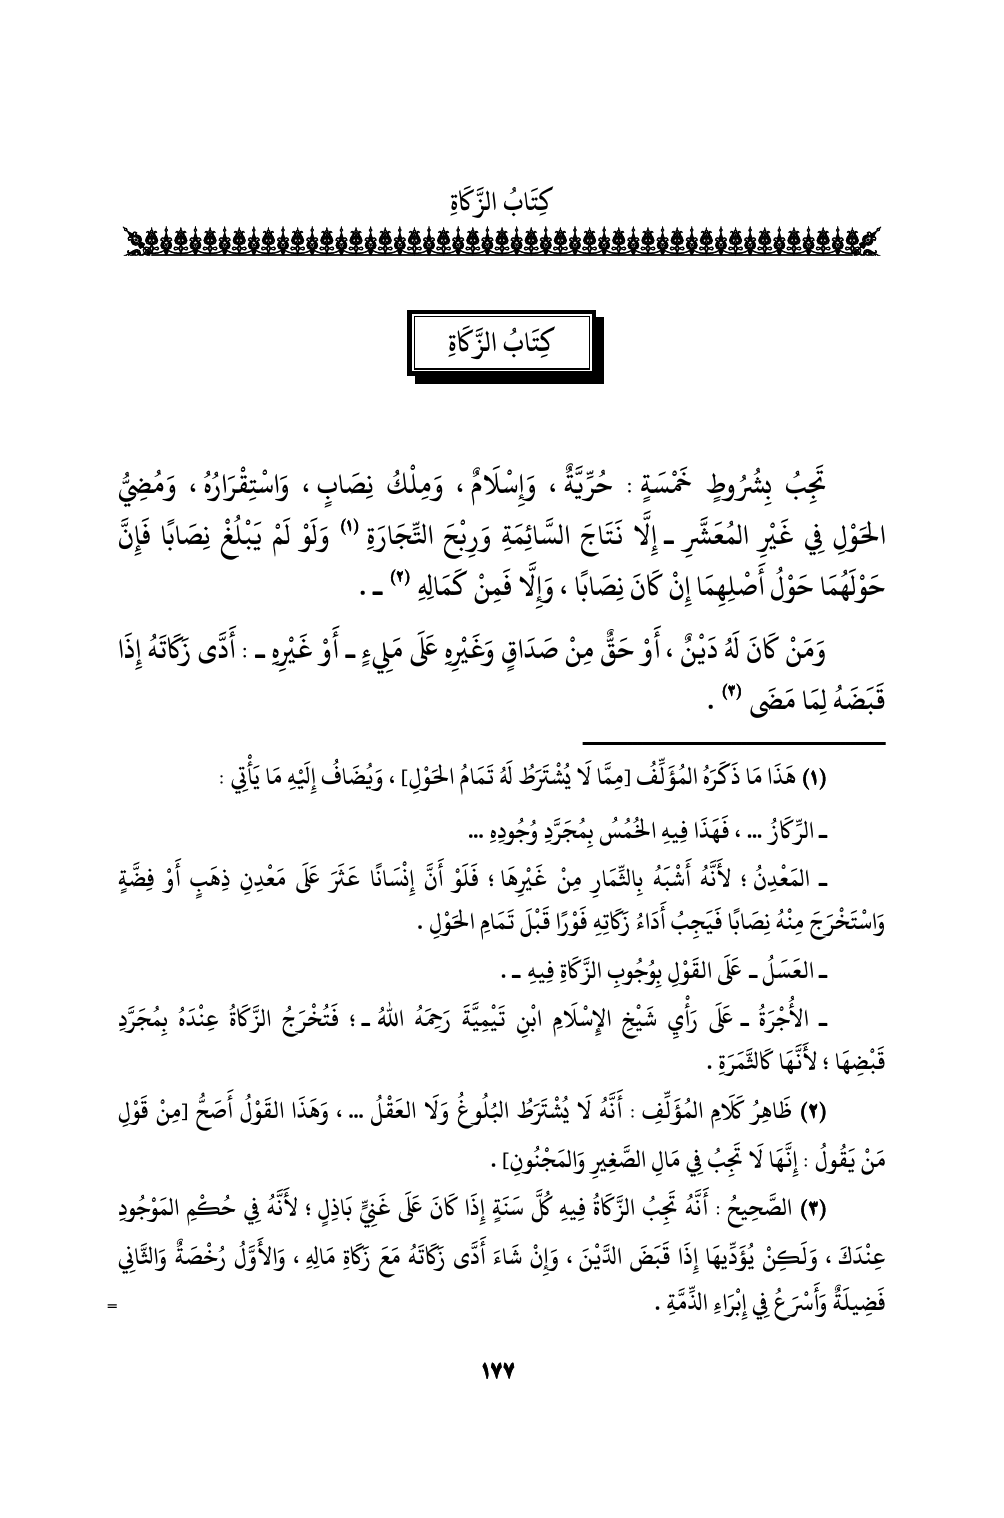 كِتَابُ الزَّكَاةِ
كِتَابُ الزَّكَاةِ
تَجِبُ بِشُرُوطٍ خَمْسَةٍ : حُرِّيَّةٌ ، وَإِسْلَامٌ ، وَمِلْكُ نِصَابٍ ، وَاسْتِقْرَارُهُ ، وَمُضِيُّ
الحَوْلِ فِي غَيْرِ المُعَشَّرِ ـ إِلَّا نَتَاجَ السَّائِمَةِ وَرِبْحَ التِّجَارَةِ (١) وَلَوْ لَمْ يَبْلُغْ نِصَابًا فَإِنَّ
حَوْلَهُمَا حَوْلُ أَصْلِهِمَا إِنْ كَانَ نِصَابًا ، وَإِلَّا فَمِنْ كَمَالِهِ (٢) ـ .
وَمَنْ كَانَ لَهُ دَيْنٌ ، أَوْ حَقٌّ مِنْ صَدَاقٍ وَغَيْرِهِ عَلَى مَلِيءٍ ـ أَوْ غَيْرِهِ ـ : أَدَّى زَكَاتَهُ إِذَا
قَبَضَهُ لِمَا مَضَى (٣) .
(١) هَذَا مَا ذَكَرَهُ المُؤَلِّفُ [مِمَّا لَا يُشْتَرَطُ لَهُ تَمَامُ الحَوْلِ] ، وَيُضَافُ إِلَيْهِ مَا يَأْتِي :
ـ الرِّكَازُ ... ، فَهَذَا فِيهِ الخُمُسُ بِمُجَرَّدِ وُجُودِهِ ...
ـ المَعْدِنُ ؛ لأَنَّهُ أَشْبَهُ بِالثِّمَارِ مِنْ غَيْرِهَا ؛ فَلَوْ أَنَّ إِنْسَانًا عَثَرَ عَلَى مَعْدِنِ ذِهَبٍ أَوْ فِضَّةٍ
وَاسْتَخْرَجَ مِنْهُ نِصَابًا فَيَجِبُ أَدَاءُ زَكَاتِهِ فَوْرًا قَبْلَ تَمَامِ الحَوْلِ .
ـ العَسَلُ ـ عَلَى القَوْلِ بِوُجُوبِ الزَّكَاةِ فِيهِ ـ .
ـ الأُجْرَةُ ـ عَلَى رَأْيِ شَيْخِ الإِسْلَامِ ابْنِ تَيْمِيَّةَ رَحِمَهُ اللهُ ـ ؛ فَتُخْرَجُ الزَّكَاةُ عِنْدَهُ بِمُجَرَّدِ
قَبْضِهَا ؛ لأَنَّهَا كَالثَّمَرَةِ .
(٢) ظَاهِرُ كَلَامِ المُؤَلِّفِ : أَنَّهُ لَا يُشْتَرَطُ البُلُوغُ وَلَا العَقْلُ ... ، وَهَذَا القَوْلُ أَصَحُّ [مِنْ قَوْلِ
مَنْ يَقُولُ : إِنَّهَا لَا تَجِبُ فِي مَالِ الصَّغِيرِ وَالمَجْنُونِ] .
(٣) الصَّحِيحُ : أَنَّهُ تَجِبُ الزَّكَاةُ فِيهِ كُلَّ سَنَةٍ إِذَا كَانَ عَلَى غَنِيٍّ بَاذِلٍ ؛ لأَنَّهُ فِي حُكْمِ المَوْجُودِ
عِنْدَكَ ، وَلَكِنْ يُؤَدِّيهَا إِذَا قَبَضَ الدَّيْنَ ، وَإِنْ شَاءَ أَدَّى زَكَاتَهُ مَعَ زَكَاةِ مَالِهِ ، وَالأَوَّلُ رُخْصَةٌ وَالثَّانِي
فَضِيلَةٌ وَأَسْرَعُ فِي إِبْرَاءِ الذِّمَّةِ . =
١٧٧